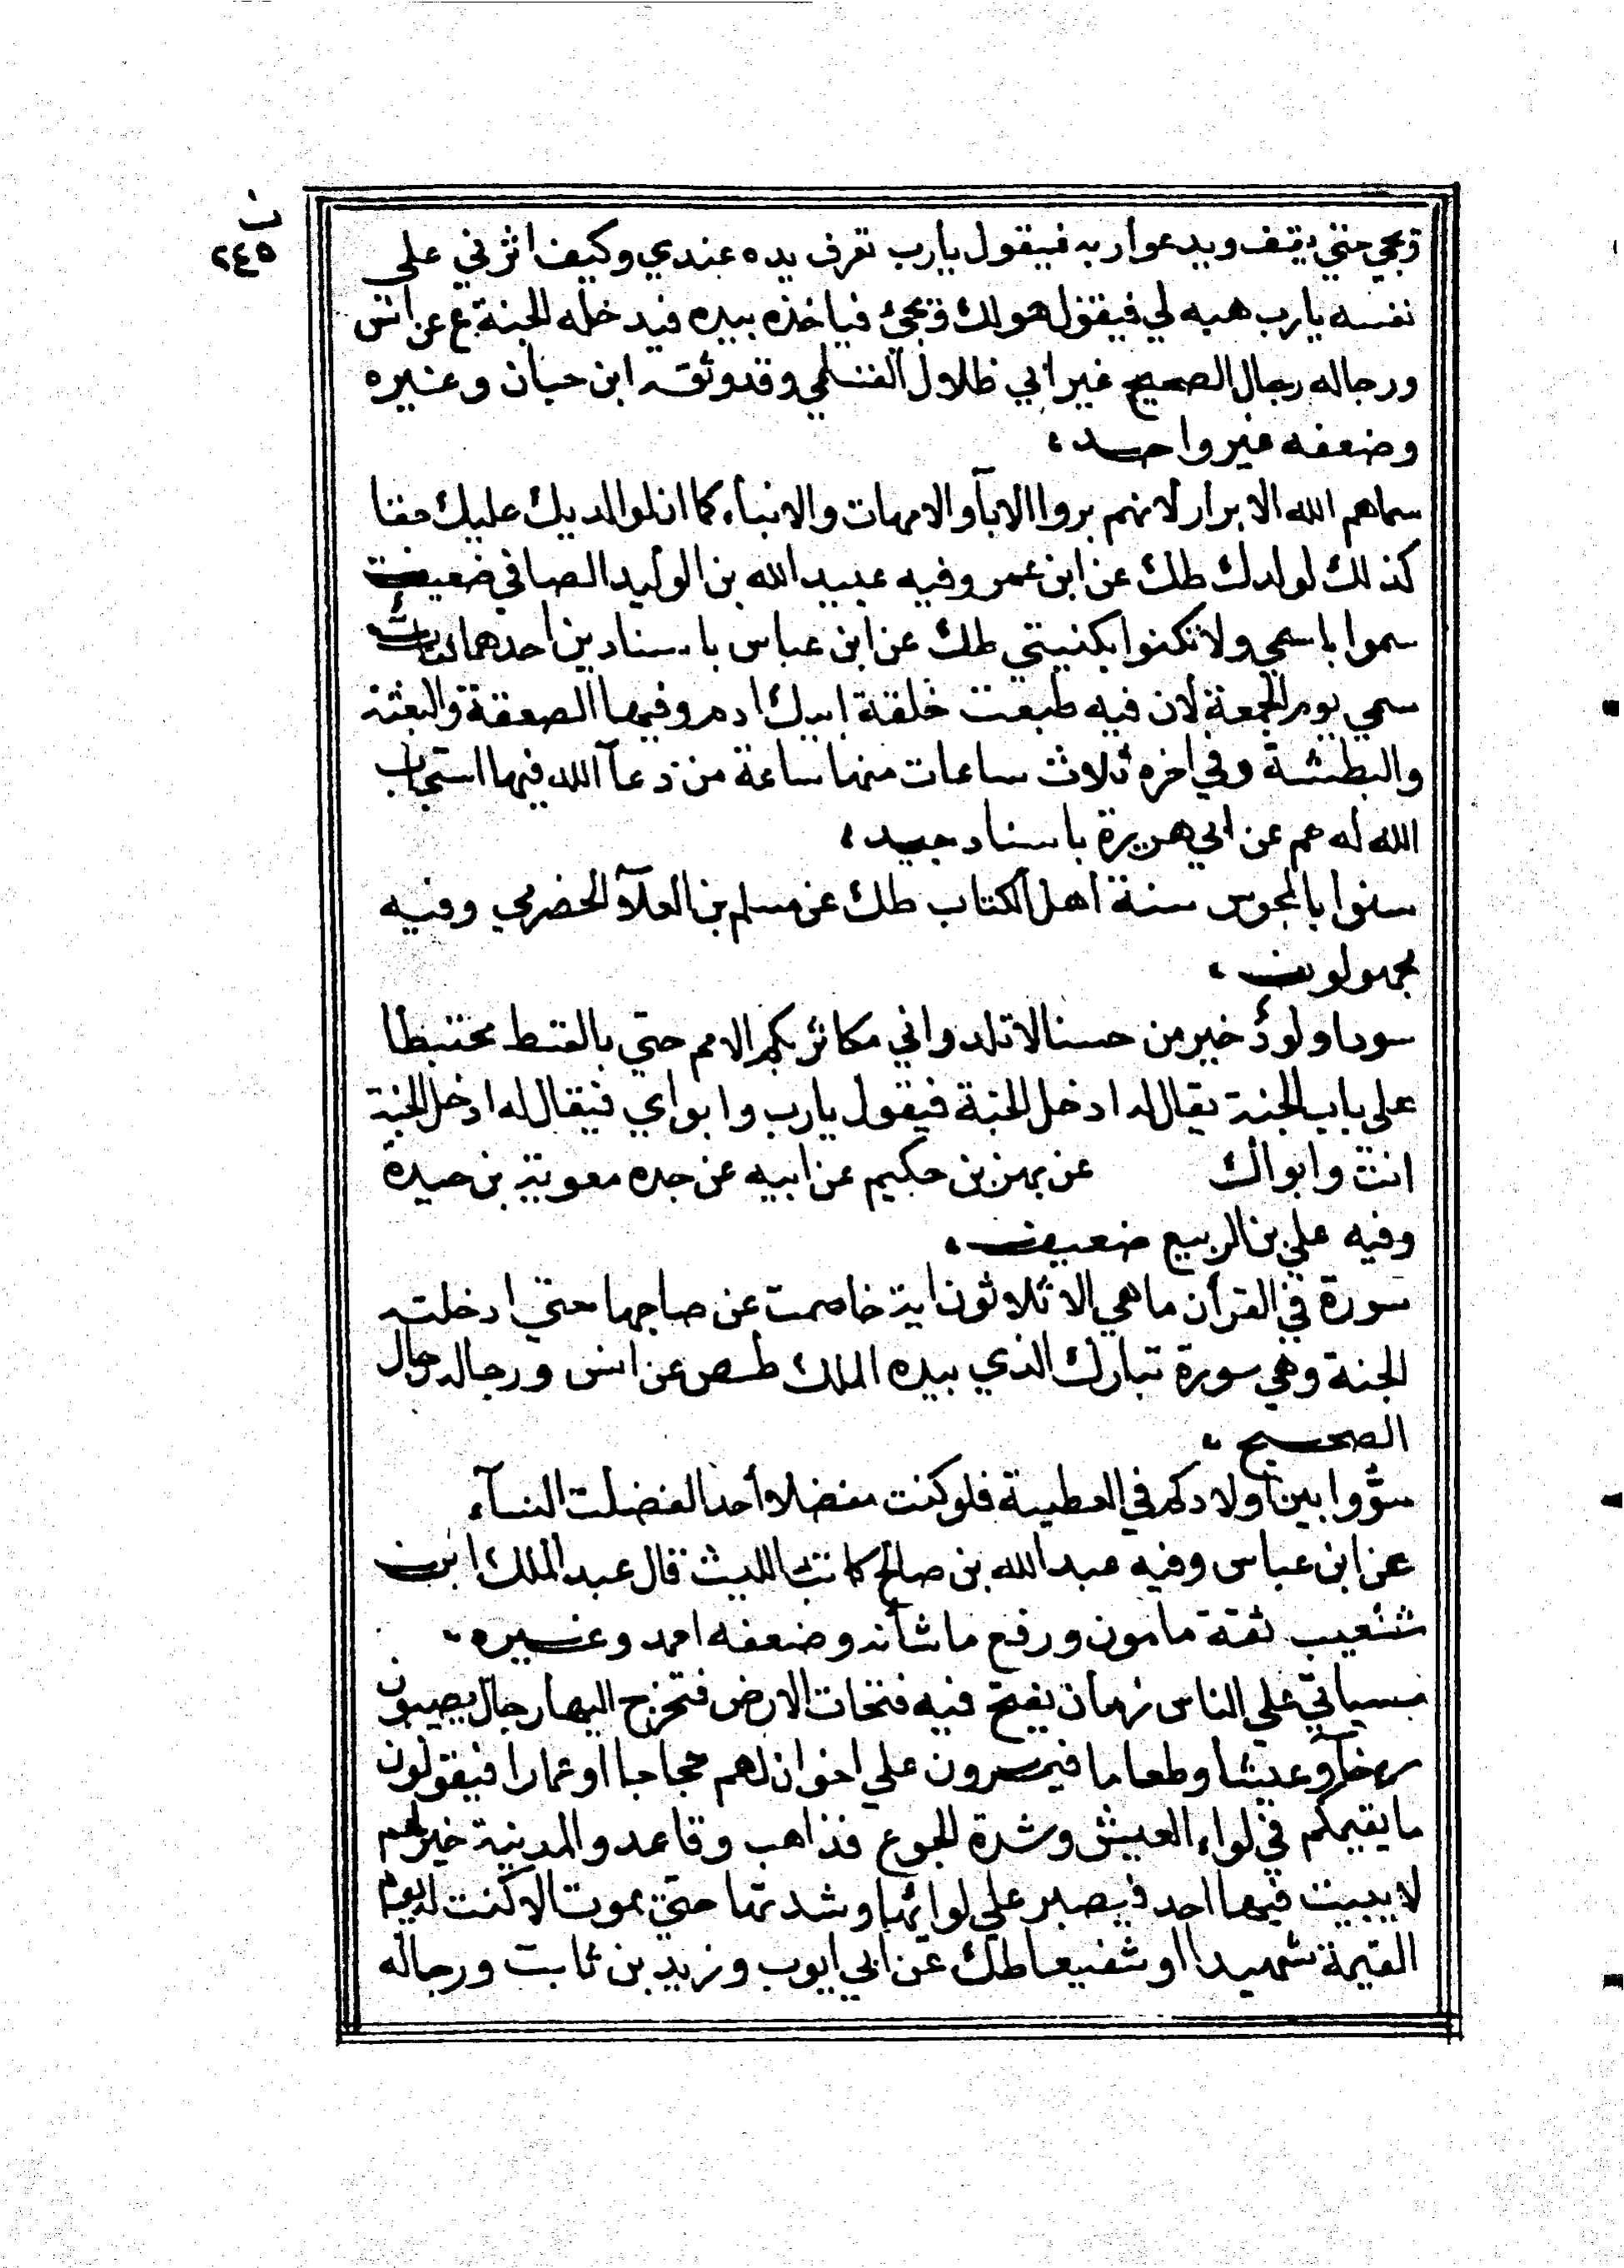 ن
٢٤٥
ويجي حتي يقف ويدعوا ربه فيقول يارب تعرف يده عندي وكيف اثرني علي
نفسه يارب هبه لي فيقول هو لك ويجئ فياخذه بيده فيدخله الجنة ع عن انس
ورجاله رجال الصحيح غير ابي ظلال القسملي وقد وثقه ابن حبان وغيره
وضعفه غير واحد ،
سماهم الله الابرار لانهم بروا الابآ والامهات والابنآء كما ان لوالديك عليك حقا
كذلك لولدك طك عن ابن عمر وفيه عبيد الله بن الوليد الصافي ضعيف
سموا باسمي ولا تكنوا بكنيتي طك عن ابن عباس باسنادين احدهما ثقات
سمي يوم الجمعة لان فيه طبعت خلقة ابيك ادم وفيها الصعقة والبعثة
والبطشة وفي اخره ثلاث ساعات منها ساعة من دعآ الله فيها استجاب
الله له حم عن ابي هريرة باسناد جيد ،
سنوا بالمجوس سنة اهل الكتاب طك عن مسلم بن العلآء الحضرمي وفيه
مجهولون ،
سودا ولودٌ خير من حسنا لا تلد واني مكاثر بكم الامم حتي بالقسط محتبنطأ
علي باب الجنة يقال له ادخل الجنة فيقول يارب وابواي فيقال له ادخل الجنة
انت وابواك عن بهز بن حكيم عن ابيه عن جده معوية بن حيدة
وفيه علي بن الربيع ضعيف ،
سورة في القرأن ما هي الا ثلاثون اية خاصمت عن صاحبها حتي ادخلته
الجنة وهي سورة تبارك الذي بيده الملك طص عن انس ورجاله رجال
الصحيح ،
سوُّوا بين اولادكم في العطية فلو كنت مفضلا احدا لفضلت النسآء
عن ابن عباس وفيه عبد الله بن صالح كاتب الليث قال عبد الملك ابن
شعيب ثقة مامون ورفع ما شأنه وضعفه احمد وغيره ،
سياتي علي الناس زمان يفتح فيه فتحات الارض فتخرج اليها رجال يصيبون
رخآء وعيشا وطعاما فيمرون علي اخوان لهم حجاجا او عمارا فيقولون
ما يقيمكم في لواء العيش وشدة الجوع فذاهب وقاعد والمدينة خير لهم
لا يبيت فيها احد فيصبر علي لوائها وشدتها حتي يموت الا كنت له يوم
القيمة شهيدا او شفيعا طك عن ابي ايوب وزيد بن ثابت ورجاله